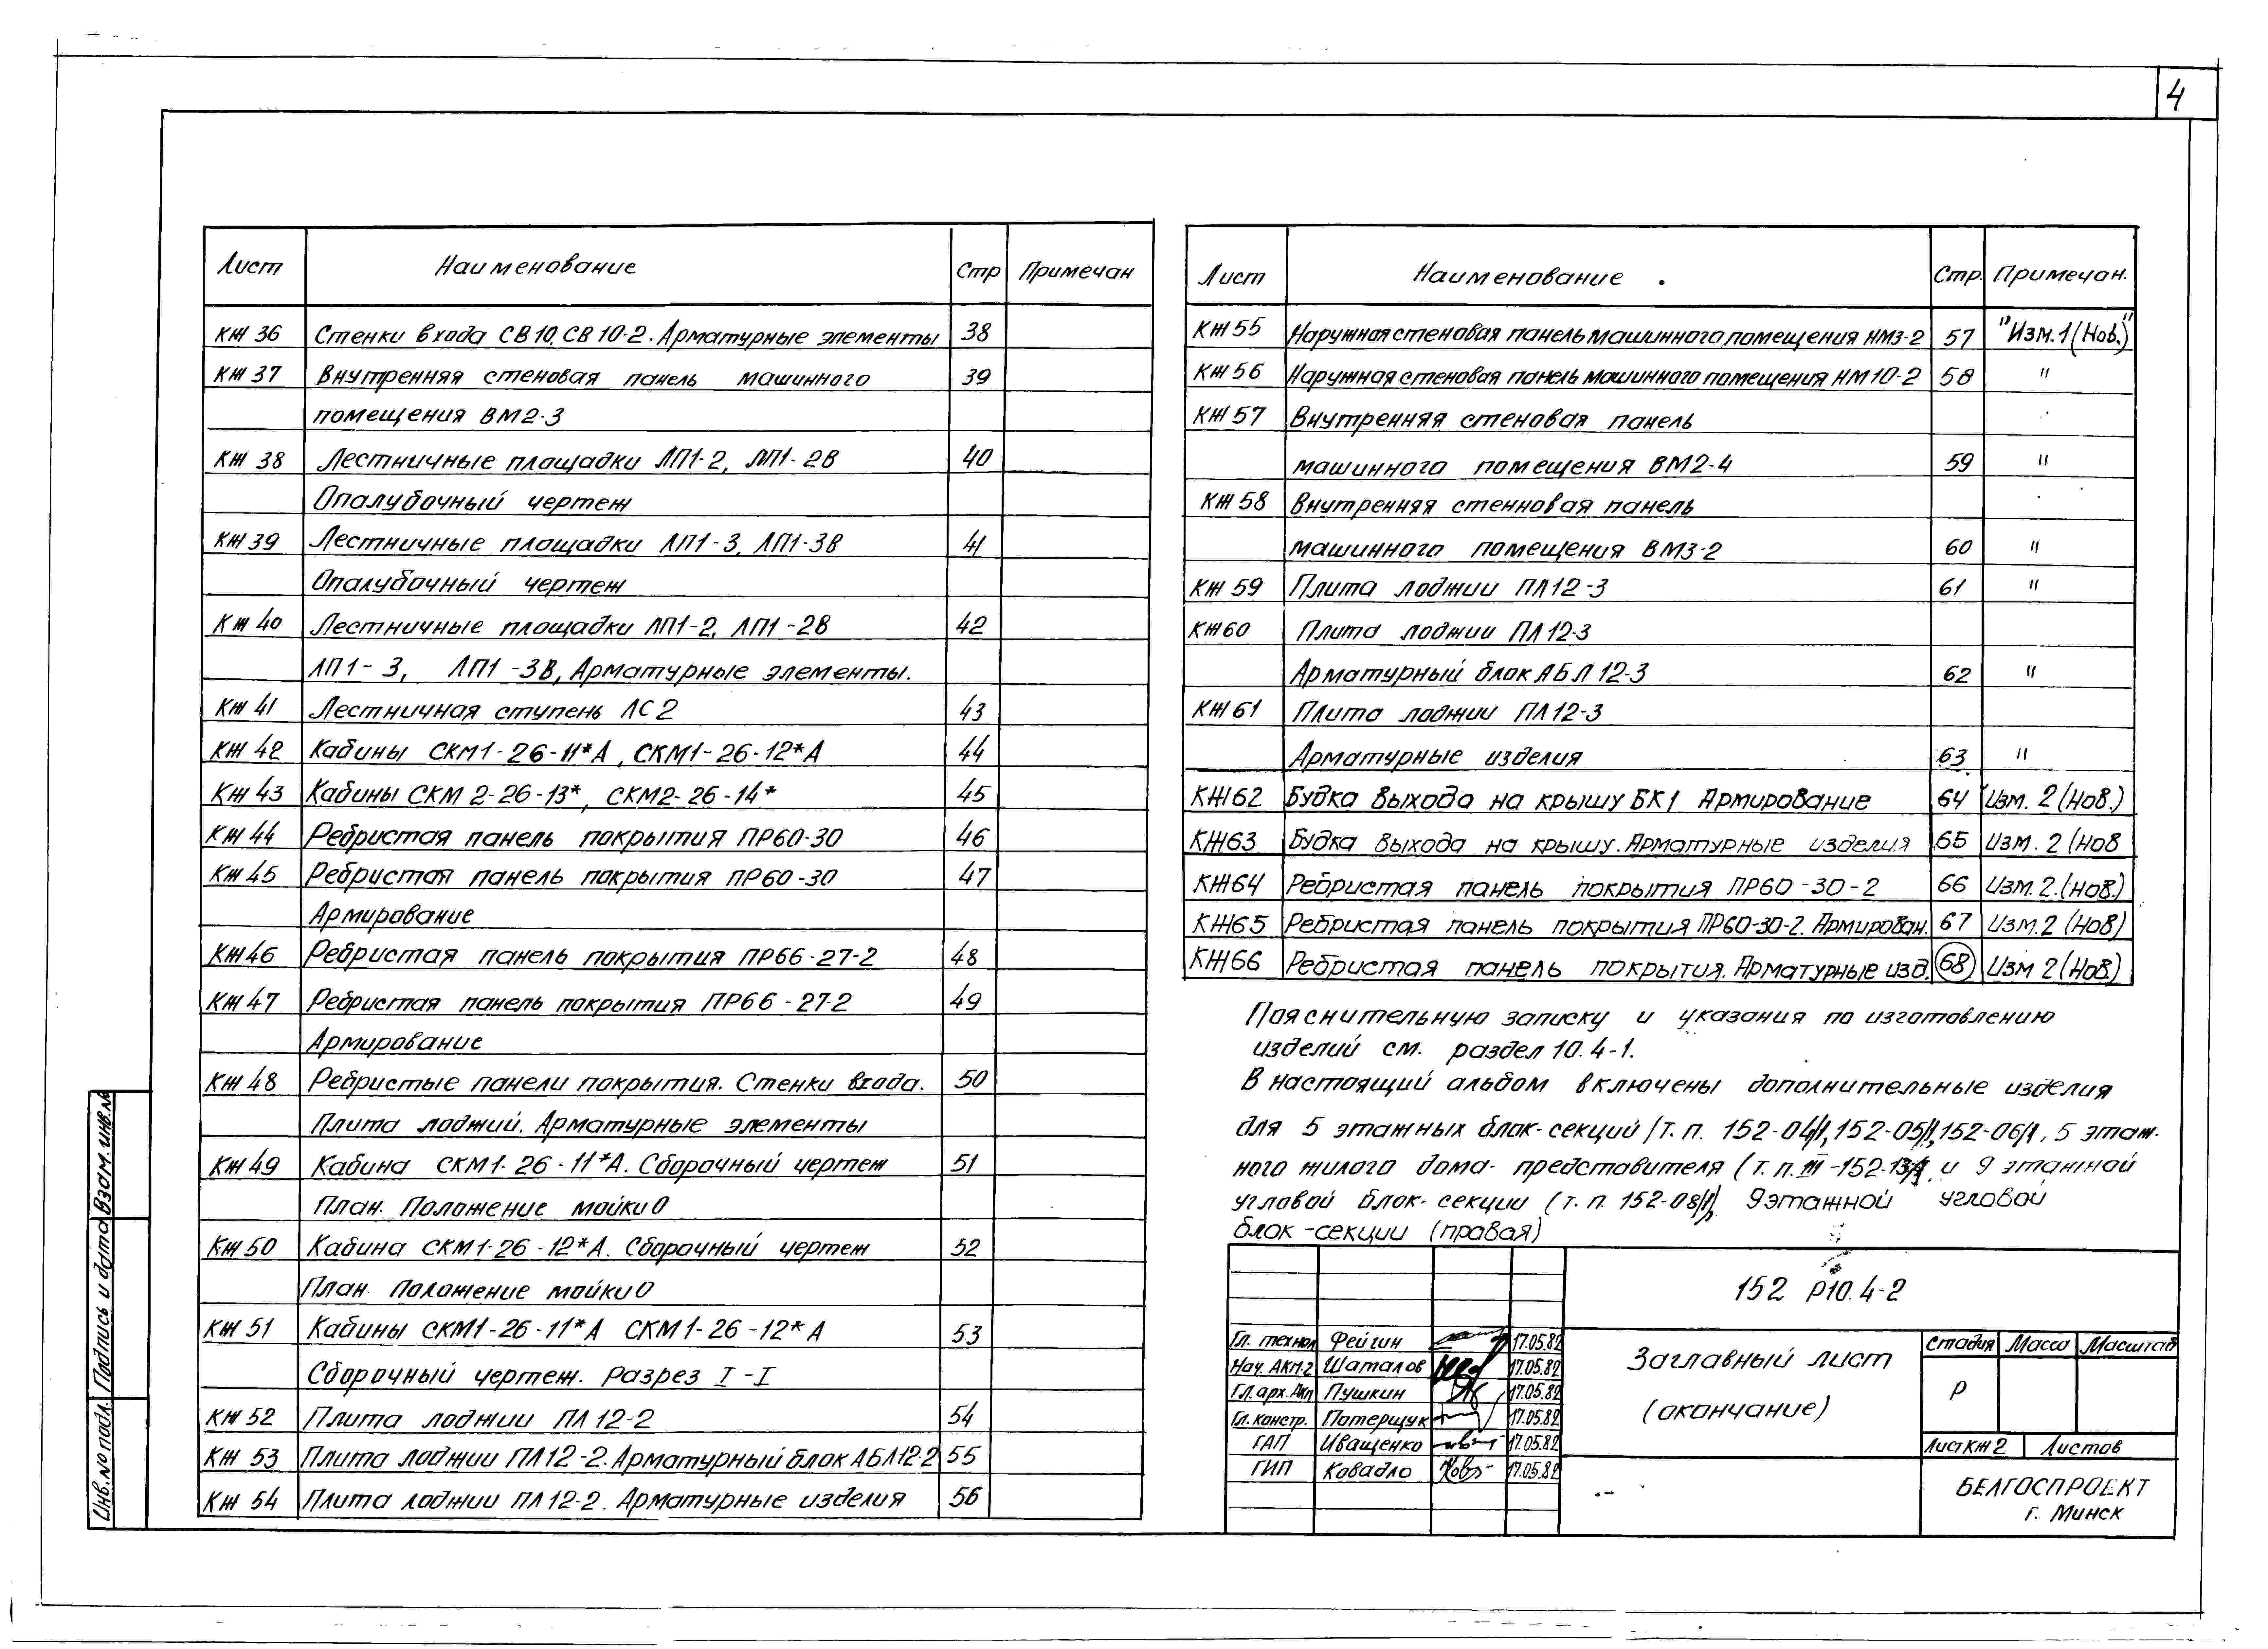 4
Лист Наименование Стр Примечан
КЖ 36 Стенки входа СВ10, СВ10-2. Арматурные элементы 38
КЖ 37 Внутренняя стеновая панель машинного 39
помещения ВМ2-3
КЖ 38 Лестничные площадки ЛП1-2, ЛП1-2В 40
Опалубочный чертеж
КЖ 39 Лестничные площадки ЛП1-3, ЛП1-3В 41
Опалубочный чертеж
КЖ 40 Лестничные площадки ЛП1-2, ЛП1-2В 42
ЛП1-3, ЛП1-3В, Арматурные элементы.
КЖ 41 Лестничная ступень ЛС2 43
КЖ 42 Кабины СКМ1-26-11*А, СКМ1-26-12*А 44
КЖ 43 Кабины СКМ 2-26-13*, СКМ2-26-14* 45
КЖ 44 Ребристая панель покрытия ПР60-30 46
КЖ 45 Ребристая панель покрытия ПР60-30 47
Армирование
КЖ 46 Ребристая панель покрытия ПР66-27-2 48
КЖ 47 Ребристая панель покрытия ПР66-27-2 49
Армирование
КЖ 48 Ребристые панели покрытия. Стенки входа. 50
Плита лоджий. Арматурные элементы
КЖ 49 Кабина СКМ1-26-11*А. Сборочный чертеж 51
План. Положение мойки 0
КЖ 50 Кабина СКМ1-26-12*А. Сборочный чертеж 52
План. Положение мойки 0
КЖ 51 Кабины СКМ1-26-11*А СКМ1-26-12*А 53
Сборочный чертеж. Разрез I-I
КЖ 52 Плита лоджии ПЛ12-2 54
КЖ 53 Плита лоджии ПЛ12-2. Арматурный блок АБЛ12-2 55
КЖ 54 Плита лоджии ПЛ12-2. Арматурные изделия 56
Лист Наименование Стр. Примечан.
КЖ 55 Наружная стеновая панель машинного помещения НМ3-2 57 "Изм.1(Нов.)"
КЖ 56 Наружная стеновая панель машинного помещения НМ10-2 58 "
КЖ 57 Внутренняя стеновая панель
машинного помещения ВМ2-4 59 "
КЖ 58 Внутренняя стенновая панель
машинного помещения ВМ3-2 60 "
КЖ 59 Плита лоджии ПЛ12-3 61 "
КЖ60 Плита лоджии ПЛ12-3
Арматурный блок АБЛ 12-3 62 "
КЖ 61 Плита лоджии ПЛ12-3
Арматурные изделия 63 "
КЖ62 Будка выхода на крышу БК1 Армирование 64 Изм. 2 (Нов.)
КЖ63 Будка выхода на крышу. Арматурные изделия 65 Изм. 2 (Нов
КЖ64 Ребристая панель покрытия ПР60-30-2 66 Изм. 2.(Нов.)
КЖ65 Ребристая панель покрытия ПР60-30-2. Армирован. 67 Изм.2 (Нов)
КЖ66 Ребристая панель покрытия. Арматурные изд. 68 Изм 2 (Нов)
Пояснительную записку и указания по изготовлению
изделий см. раздел 10.4-1.
В настоящий альбом включены дополнительные изделия
для 5 этажных блок-секций /т.п. 152-04/1, 152-05/1, 152-06/1, 5 этаж-
ного жилого дома-представителя (т.п. III-152-13/1 и 9 этажной
угловой блок-секции (т.п. 152-08/1) 9этажной угловой
блок-секции (правая)
152 р10.4-2
Гл. технол Фейгин 17.05.82
Нач. АКМ-2 Шаталов 17.05.82
Гл.арх. Пушкин 17.05.82
Гл. констр. Потерщук 17.05.82
ГАП Иващенко 17.05.82
ГИП Ковадло 17.05.82
Заглавный лист
(окончание)
Стадия Масса Масштаб
Р
Лист КЖ 2 Листов
БЕЛГОСПРОЕКТ
г. Минск
Инв. № подл. Подпись и дата Взам. инв. №